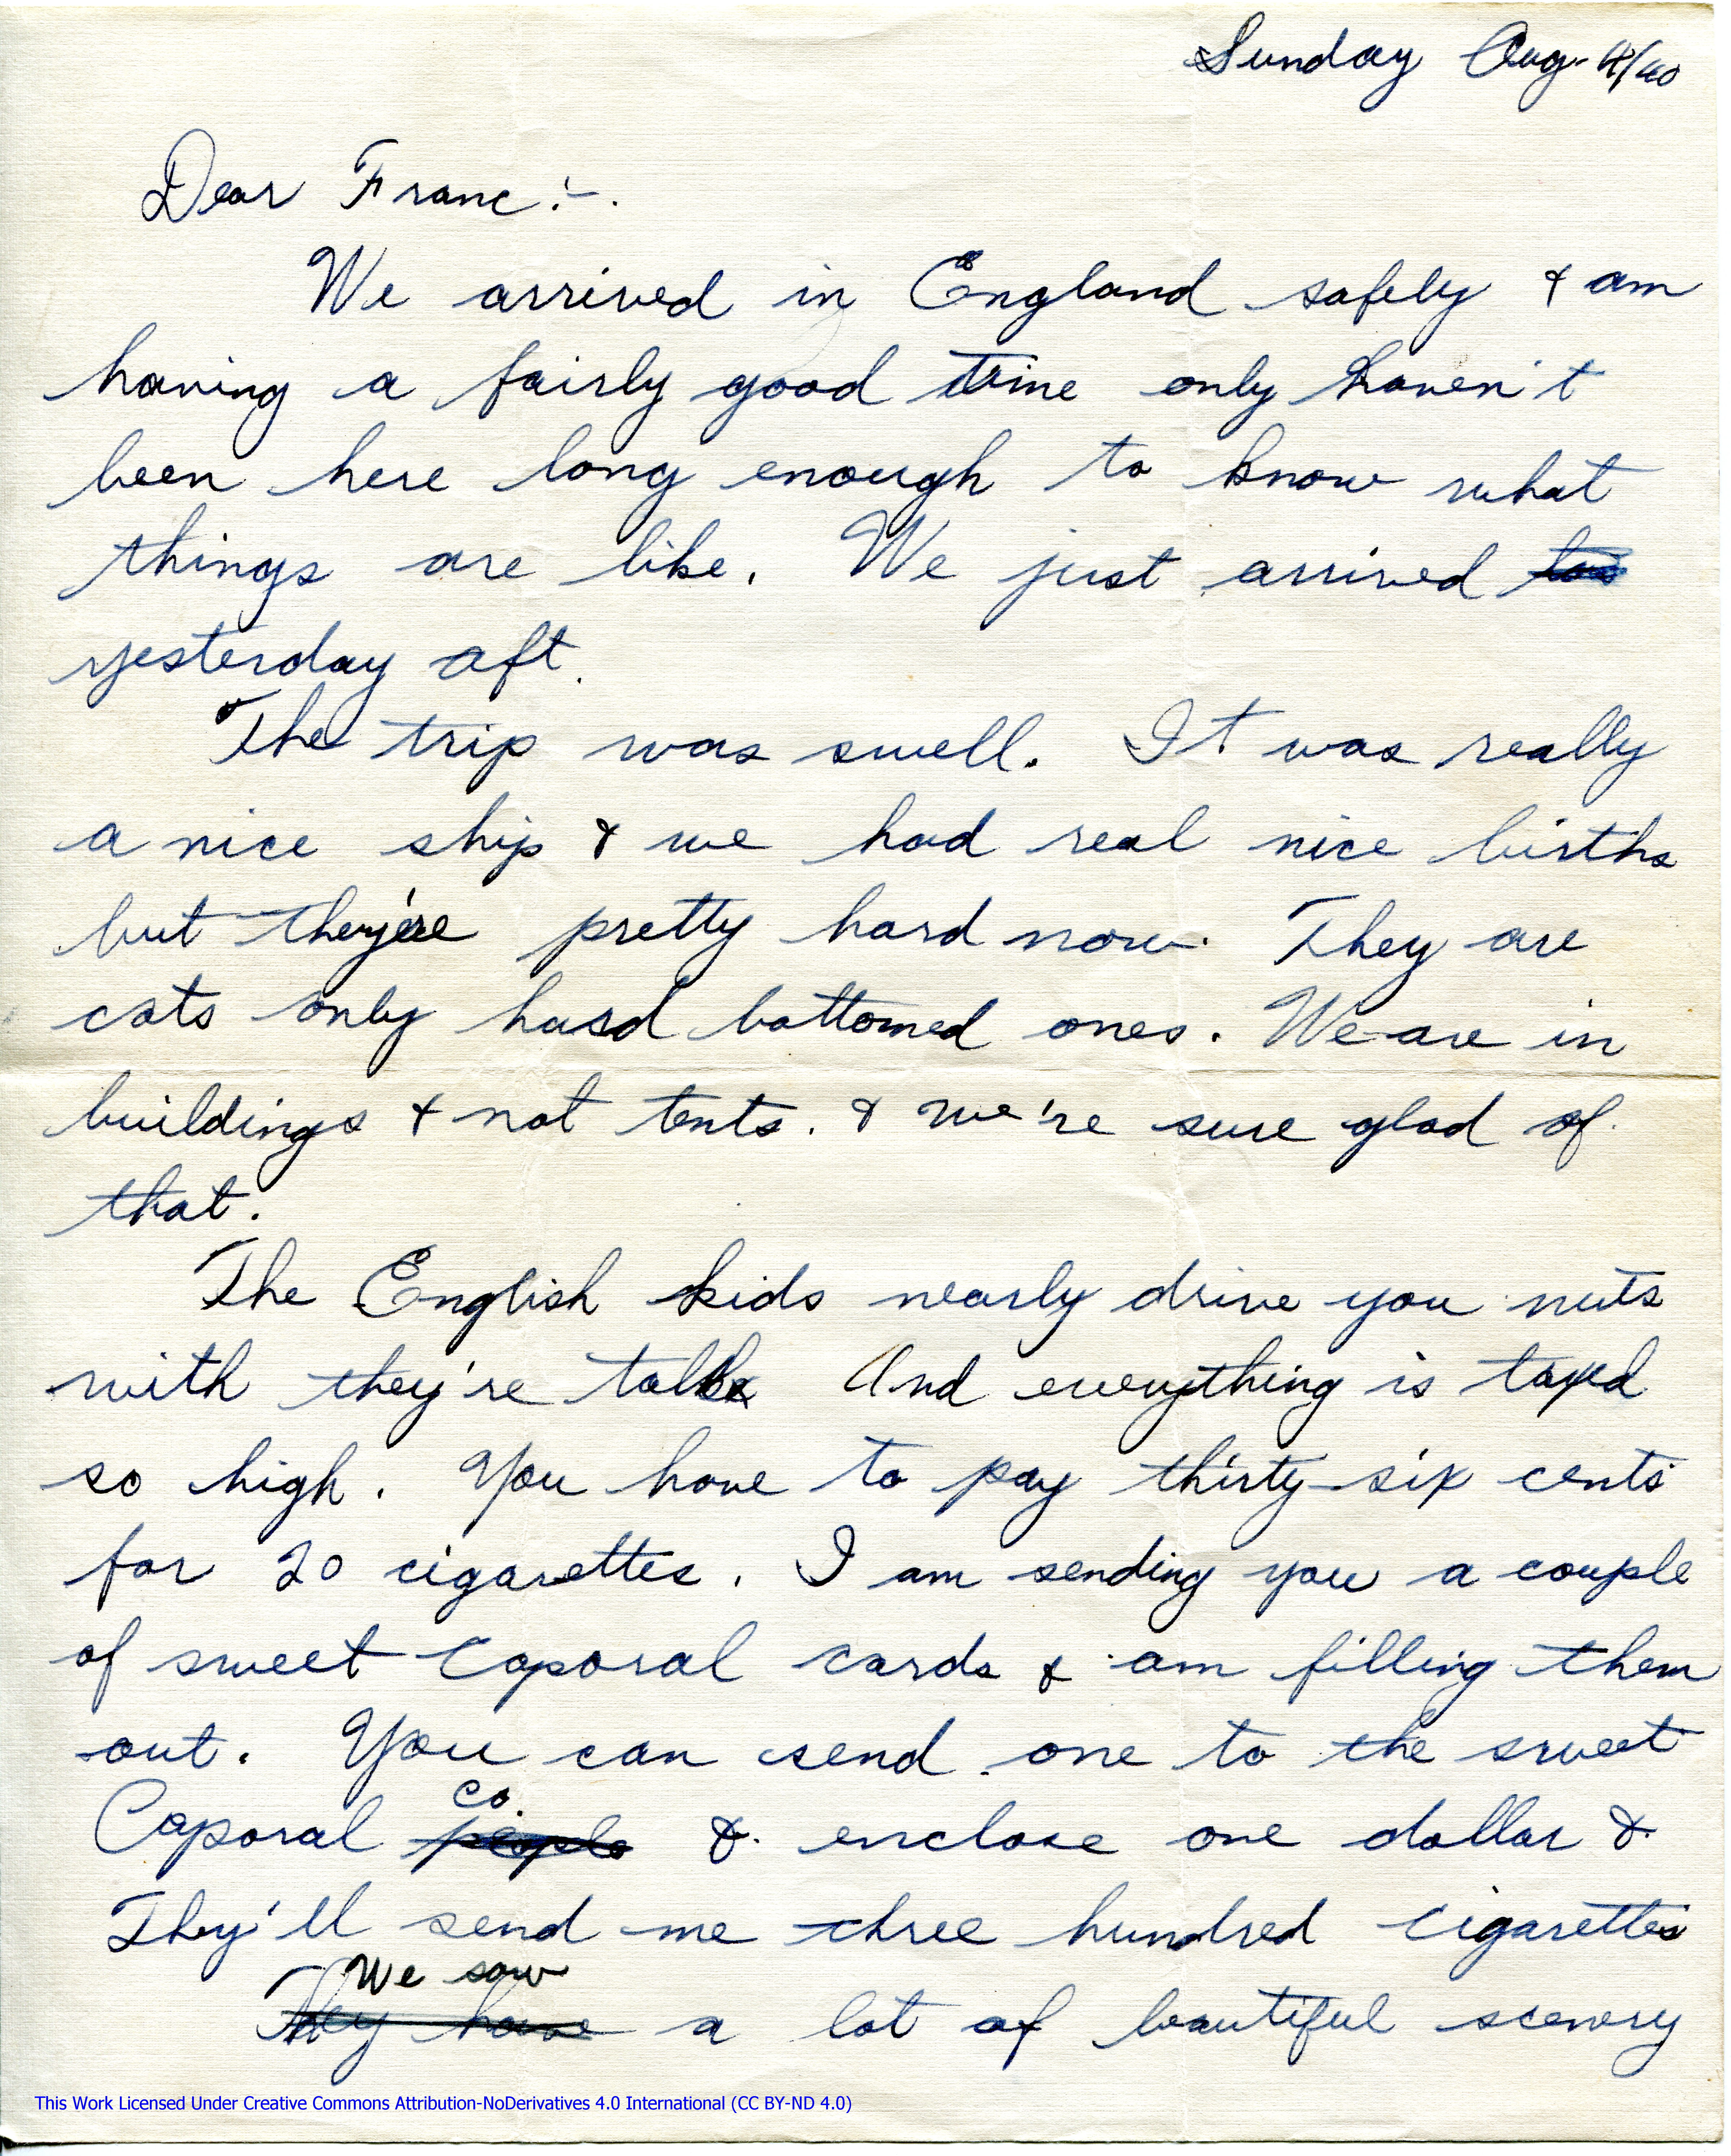 Sunday Aug. 4/40
Dear Franc:-.
We arrived in England safely & am
having a fairly good time only haven't
been here long enough to know what
things are like. We just arrived
yesterday aft.
The trip was swell. It was really
a nice ship & we had real nice births
but they're pretty hard now. They are
cots only hard bottomed ones. We are in
buildings & not tents. & we're sure glad of
that.
The English kids nearly drive you nuts
with they're talk And everything is taxed
so high. You have to pay thirty-six cents
for 20 cigarettes. I am sending you a couple
of sweet Caporal cards & am filling them
out. You can send one to the sweet
co.
Caporal people & enclose one dollar &
They'll send me three hundred cigarettes
We saw
They have a lot of beautiful scenery
This Work Licensed Under Creative Commons Attribution-NoDerivatives 4.0 International (CC BY-ND 4.0)